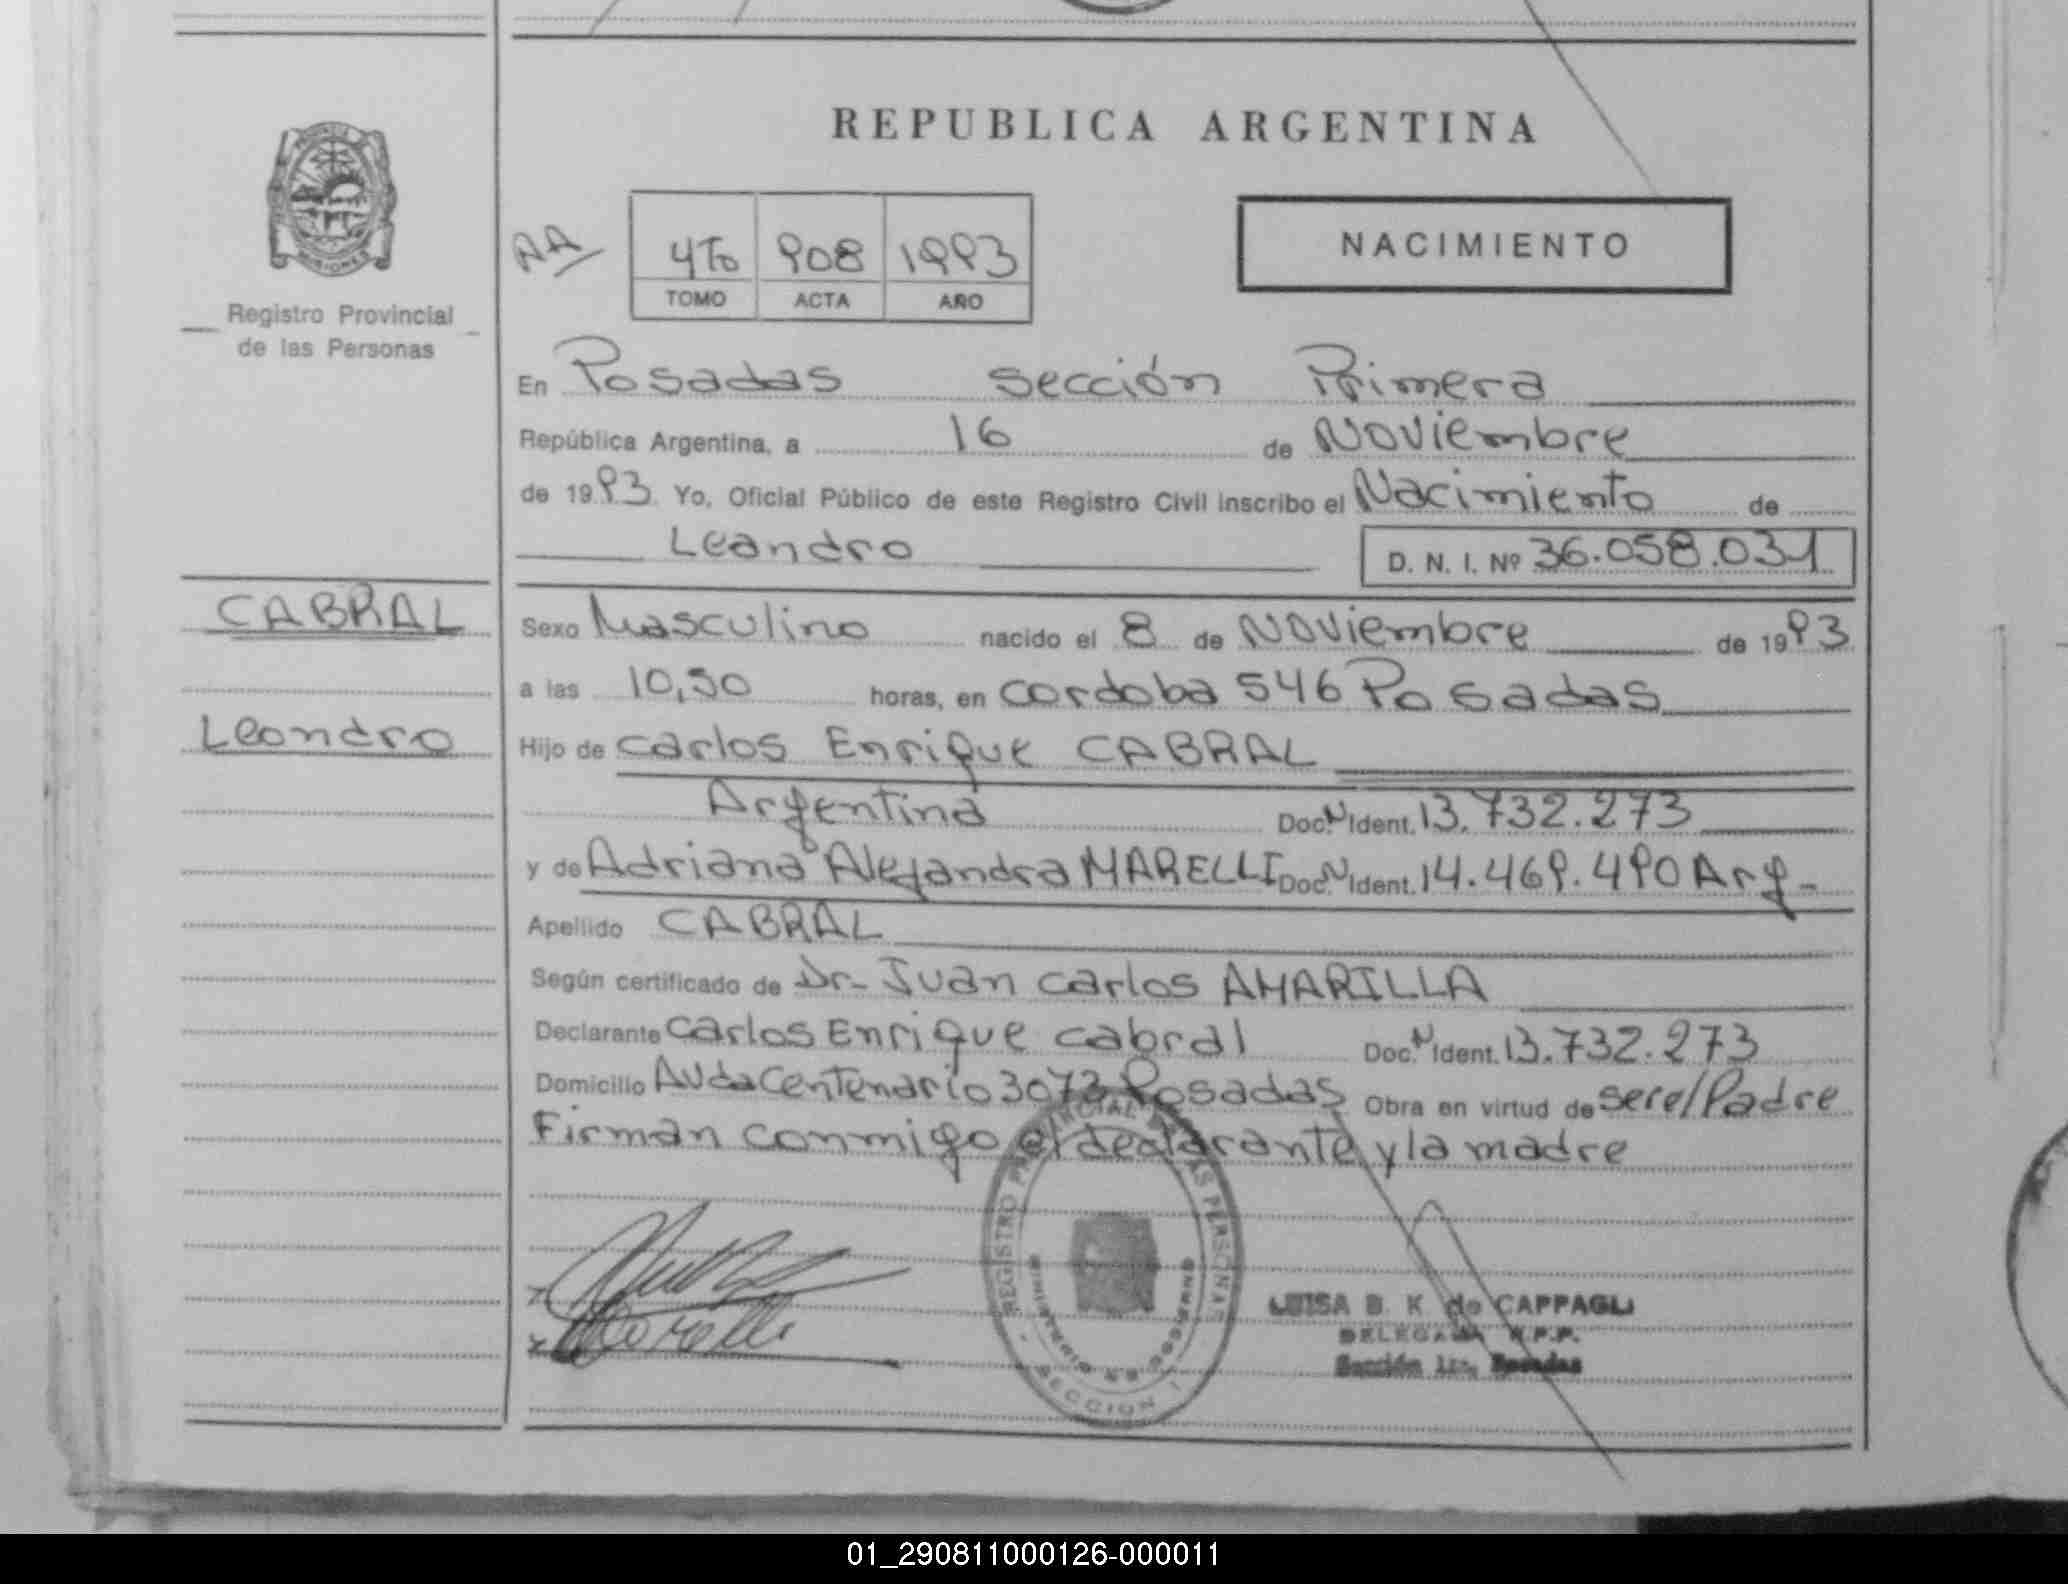 REPUBLICA ARGENTINA
NACIMIENTO
AA
4To 908 1993
TOMO ACTA AÑO
MISIONES
Registro Provincial
de las Personas
En Posadas sección Primera
República Argentina, a 16 de Noviembre
de 1993 Yo, Oficial Público de este Registro Civil inscribo el Nacimiento de
Leandro D. N. I. Nº 36.058.031
CABRAL
Leandro
Sexo Masculino nacido el 8 de Noviembre de 1993
a las 10,50 horas, en cordoba 546 Posadas
Hijo de carlos Enrique CABRAL
Argentina Doc. N Ident. 13.732.273
y de Adriana Alejandra MARELLI Doc. N Ident. 14.469.490 Arg-
Apellido CABRAL
Según certificado de Dr- Juan carlos AMARILLA
Declarante carlos Enrique cabral Doc. N Ident. 13.732.273
Domicilio Avda Centenario 3073 Posadas Obra en virtud de ser el Padre
Firman conmigo el declarante y la madre
REGISTRO PROVINCIAL DE LAS PERSONAS
MINISTERIO DE GOBIERNO
SECCION 1
LUISA B. K. de CAPPAGLI
DELEGADA R.P.P.
Sección 1ra. Posadas
01_290811000126-000011